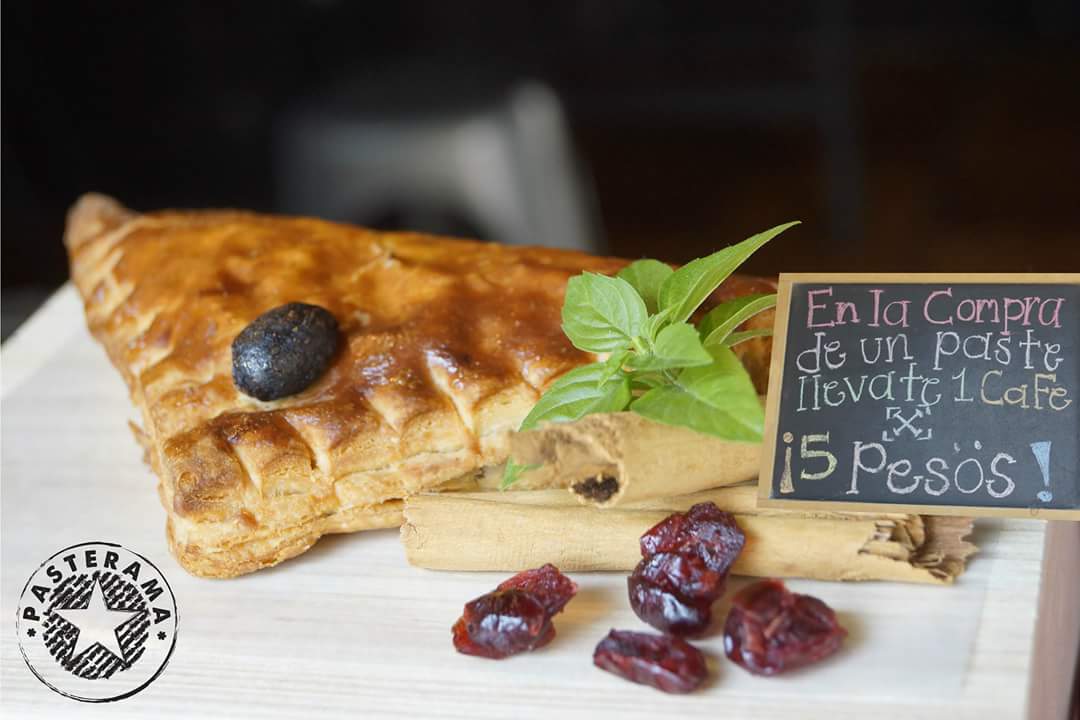 En la Compra
de un paste
llevate 1 Café
¡5 pesos!
PASTERAMA